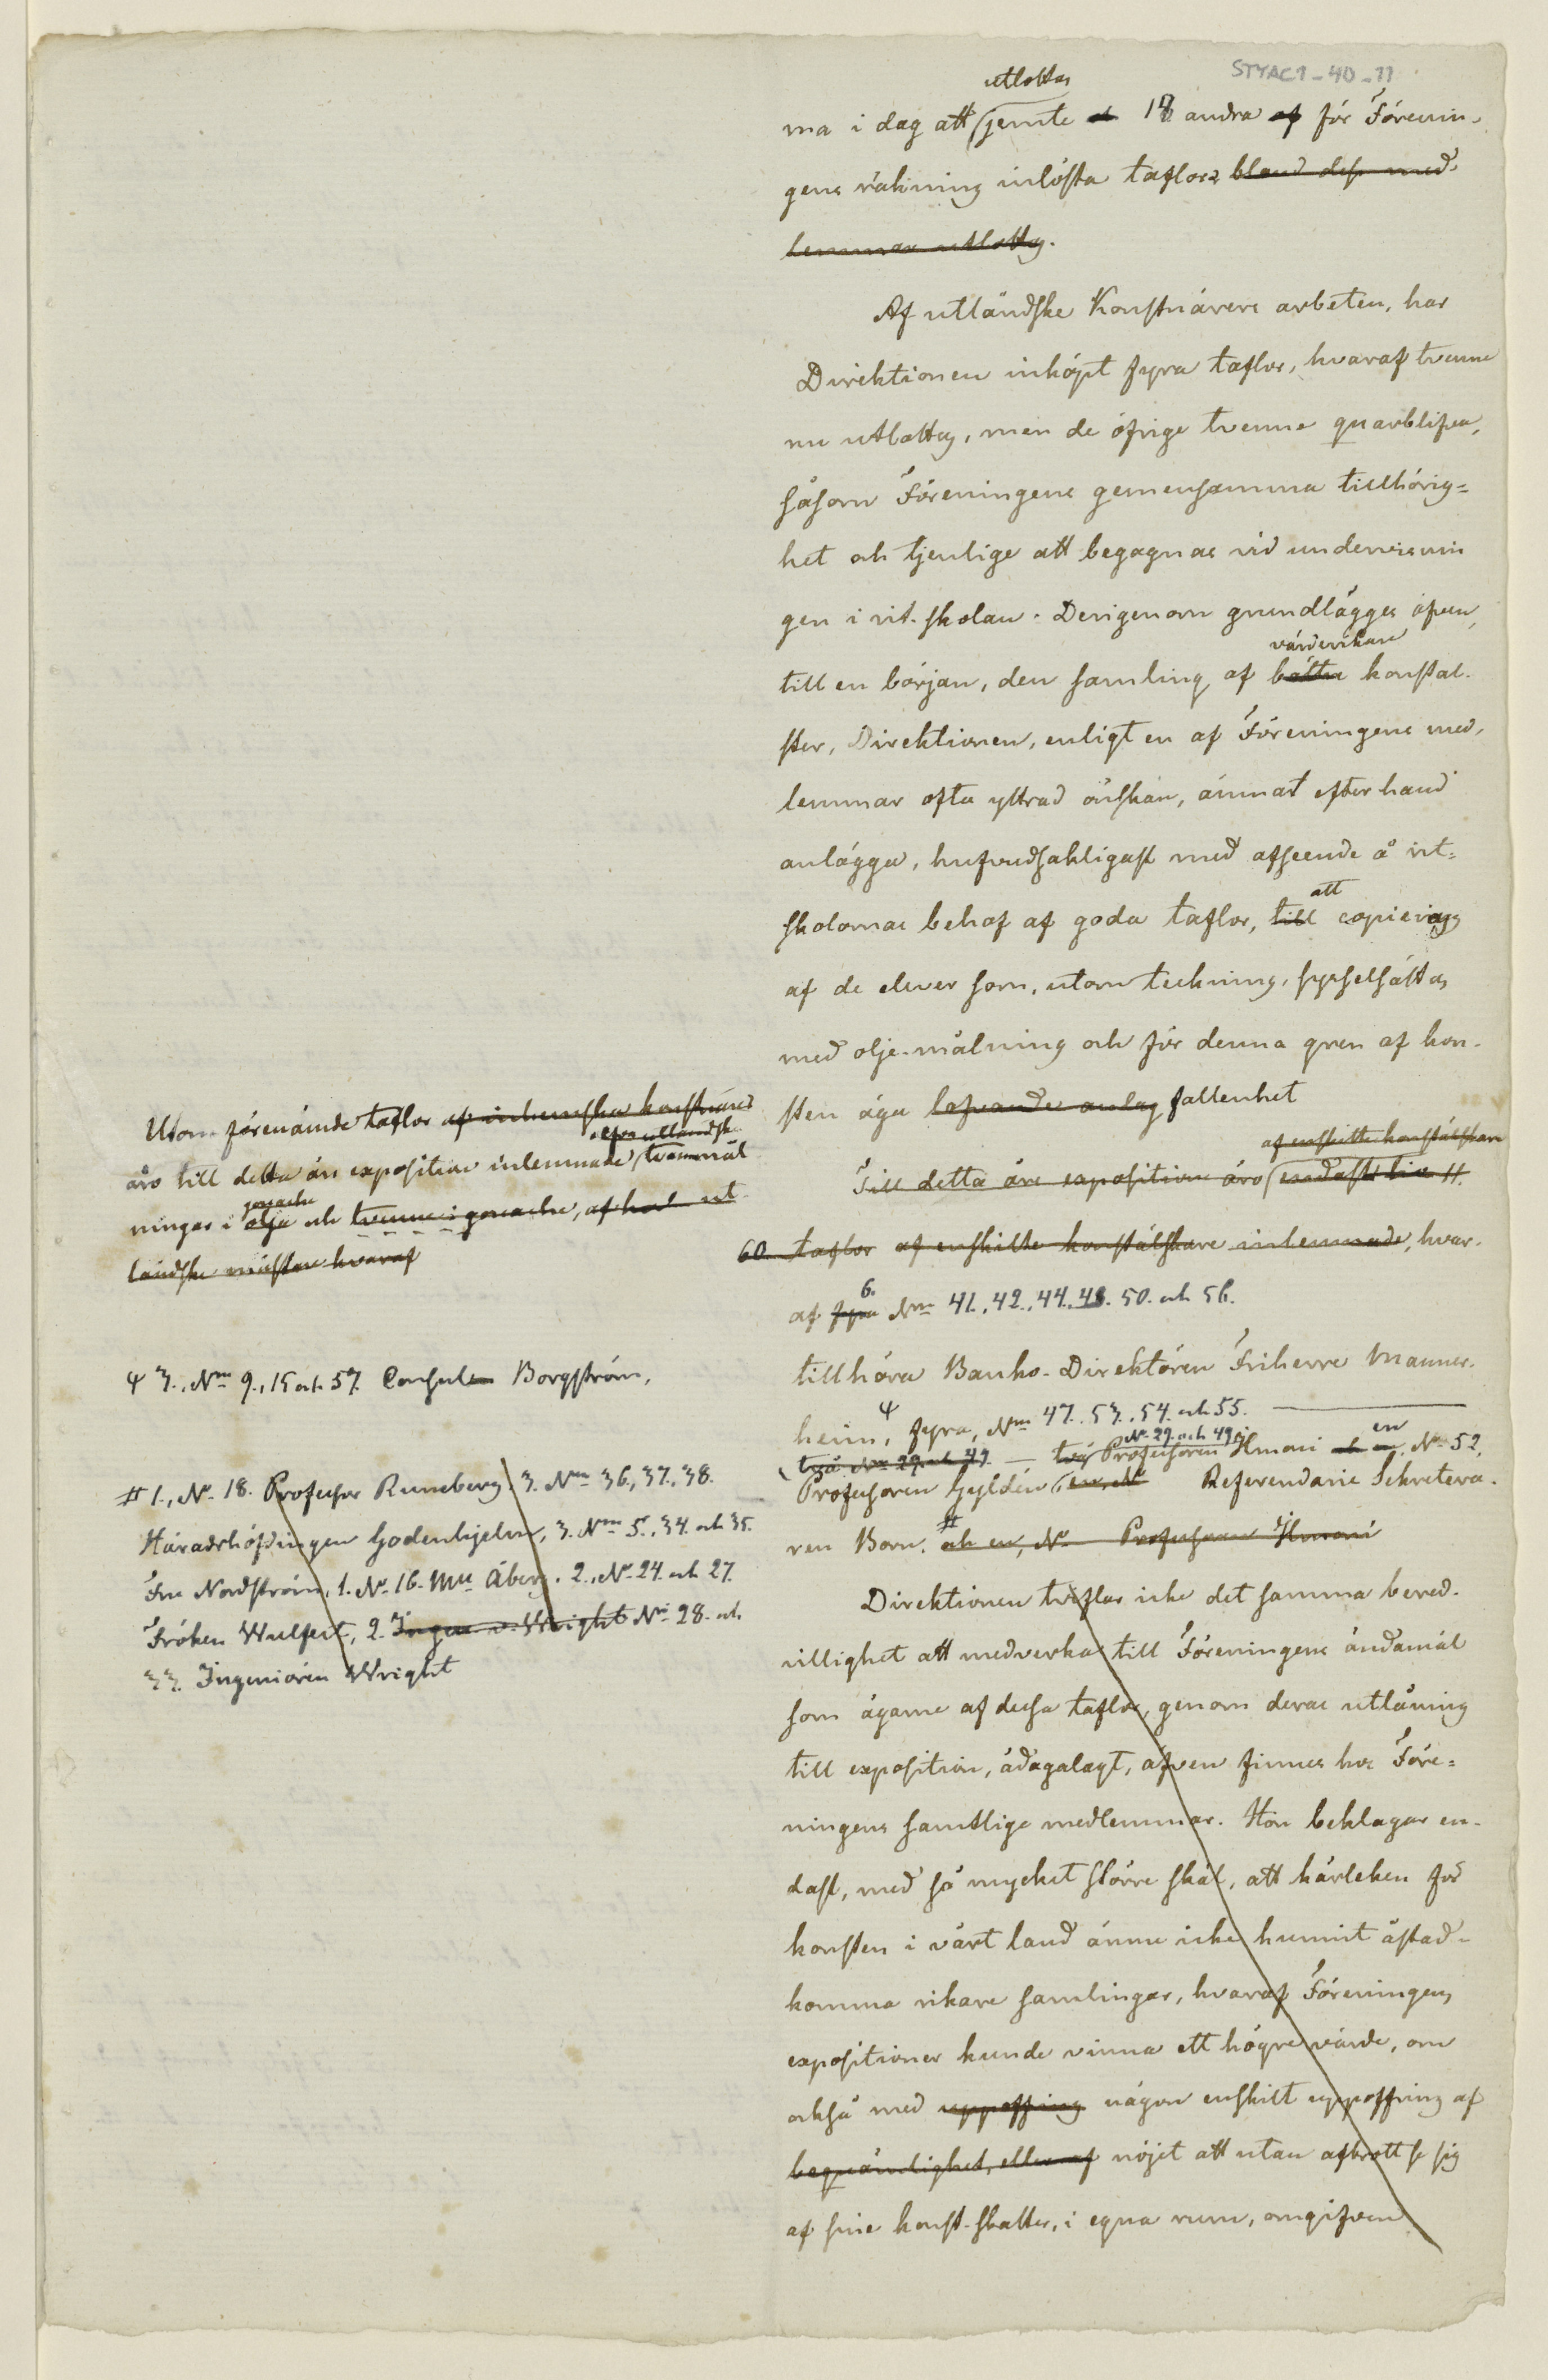 STYAC1-40-11
utlottas
ma i dag att jemte 18 andra af för Förenin-
gens räkning inlösta taflor, bland dess med-
lemmar utlottas.
Af utländske Konstnärers arbeten, har
Direktionen inköpt fyra taflor, hvaraf tvenne
nu utlottas, men de öfrige tvenne quarblifva,
såsom Föreningens gemensamma tillhörig=
het och tjenlige att begagnas vid undervisnin
gen i rit-skolan. Derigenom grundlägges äfven,
värderikare
till en början, den samling af bättre konstal-
ster, Direktionen, enligt en af Föreningens med-
lemmar ofta yttrad önskan, ämnat efter hand
anlägga, hufvudsakligast med afseende å rit=
att
skolornas behof af goda taflor, till copiering
af de elever som, utom teckning, sysselsättas
med olje-målning och för denna gren af kon-
sten äga lofvande anlag fallenhet
af enskilte konstälskare
Till detta års exposition äro endast tio
60. taflor af enskilte konstälskare inlemnade, hvar-
6.
af fyra Nris 41., 42., 44., 48. 50. och 56.
tillhöra Banko-Direktören Friherre Manner-
heim, Ψ fyra, Nris 47. 53., 54. och 55.
Nis 29. och 49. en
två Nris 29. och 49 — två Professoren Ilmoni en No 52,
Professoren Gyldén, en, No Referendarie Sekretera-
ren Born. # och en, No Professoren Ilmoni
Direktionen tviflar icke det samma bered-
villighet att medverka till Föreningens ändamål
som ägarne af dessa taflor, genom deras utlåning
till exposition, ådagalagt, äfven finnes hos Före=
ningens samtlige medlemmar. Hon beklagar en-
dast, med så mycket större skäl, att kärleken för
konsten i vårt land ännu icke hunnit åstad-
komma rikare samlingar, hvaraf Föreningens
expositioner kunde vinna ett högre värde, om
också med uppoffring någon enskilt uppoffring af
beqvämlighet, eller af nöjet att utan afbrott se sig
af sine konst-skatter, i egna rum, omgifven
Utom förenämnde taflor af inhemska konstnärer
af utländsk
äro till detta års exposition inlemnade tvenne mål
gouache
ningar i olja och tvenne i gouache, af hvad ut-
ländske mästare hvaraf
Ψ 3., Nris 9., 15 och 57. Consul Borgström,
# 1., No 18. Professor Runeberg, 3. Nris 36., 37., 38.
Häradshöfdingen Godenhjelm, 3. Nris 5., 34. och 35.
Fru Nordström, 1. No 16. Mll Åberg. 2., No 24. och 27.
Fröken Wulfert, 2. Ingen. v. Wright Nris 28. och
33. Ingeniören Wright